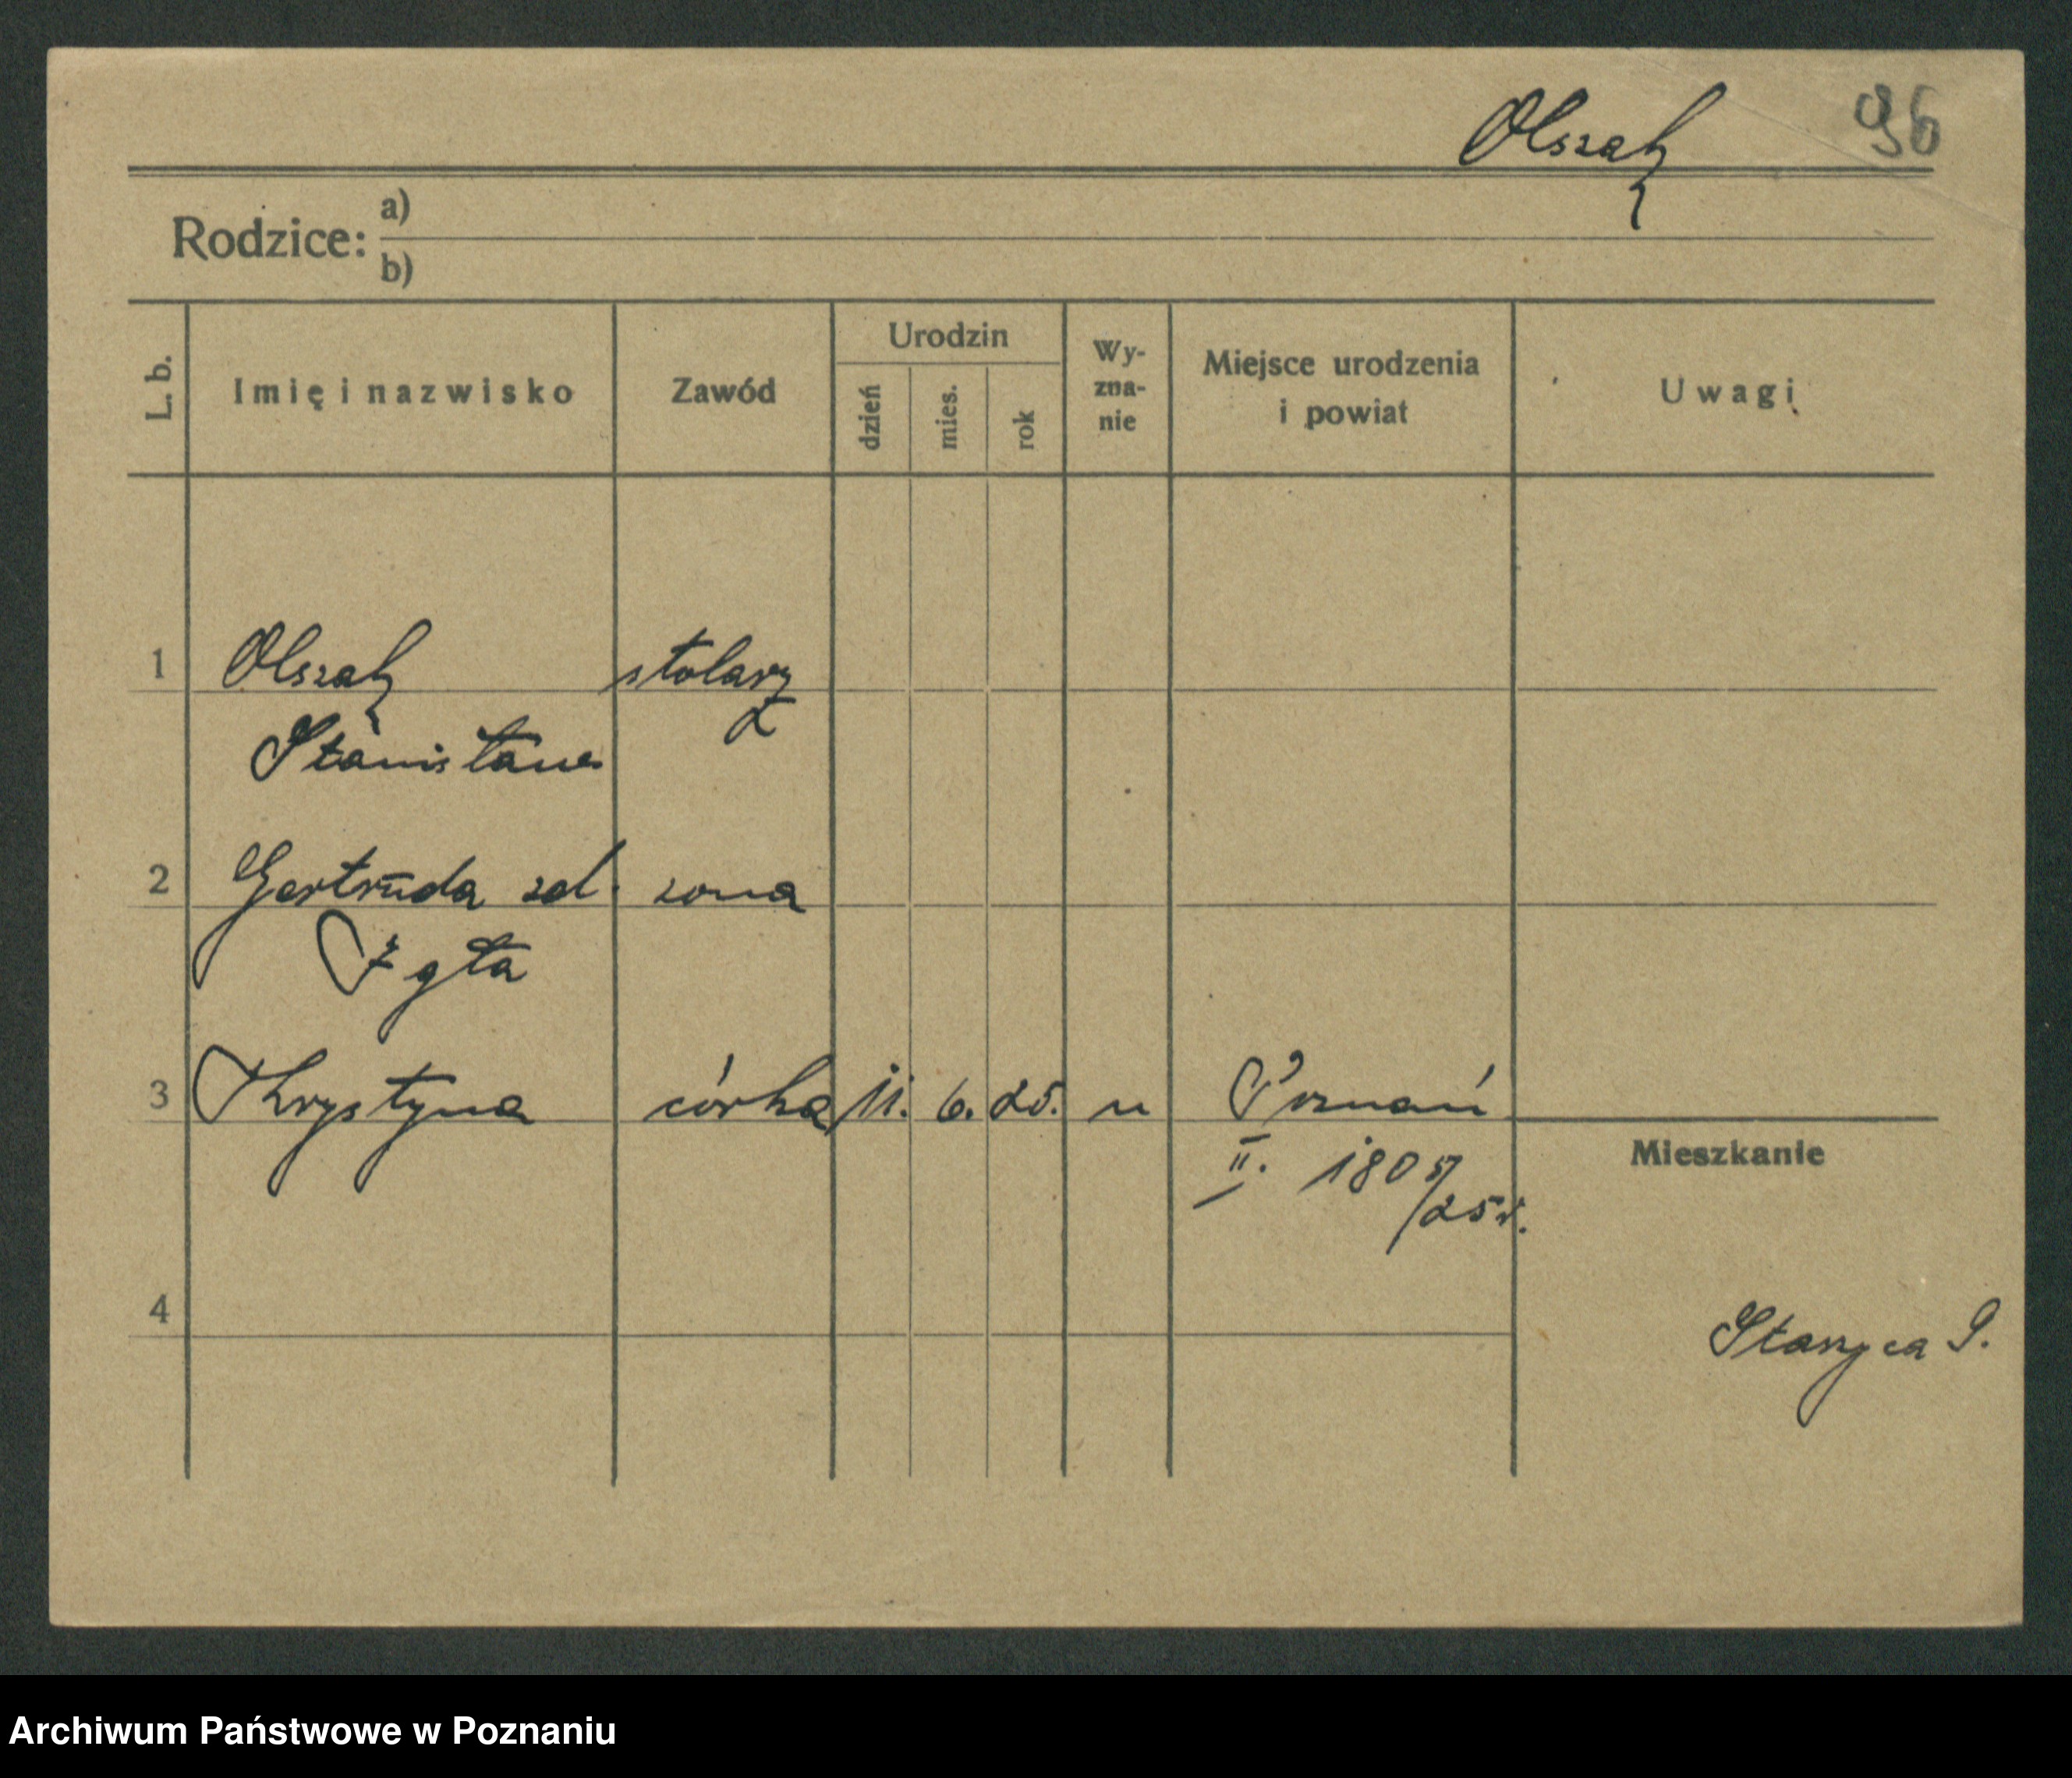 Olszak 96
Rodzice: a)
b)
L. b. Imię i nazwisko Zawód Urodzin dzień mies. rok Wy-zna-nie Miejsce urodzenia i powiat Uwagi
1 Olszak stolarz
Stanisław
2 Gertruda zd. zona
3 Krystyna córka 11. 6. 25. Poznań
II. 1805/25r.
Mieszkanie
4
Archiwum Państwowe w Poznaniu